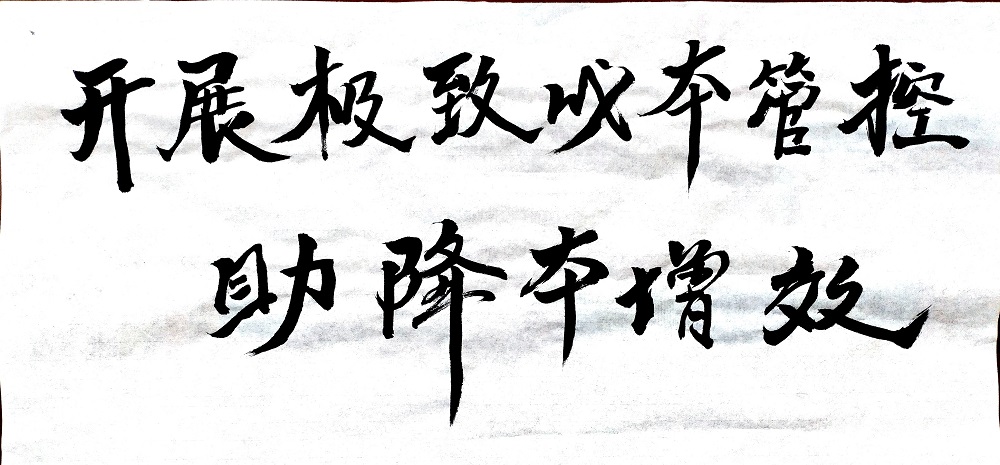 开展极致成本管控
助降本增效